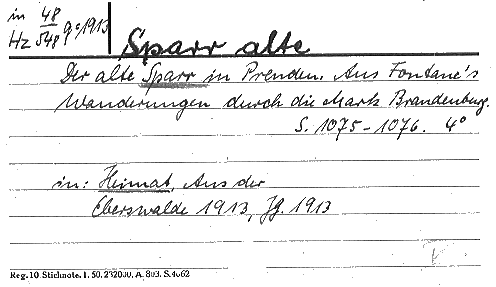 in 48
Hz 548 g:1913
Sparr alte
Der alte Sparr in Prenden. Aus Fontane's
Wanderungen durch die Mark Brandenburg.
S. 1075-1076. 4°
in: Heimat, Aus der
Eberswalde 1913, Jg. 1913
Reg. 10. Stichnote. I. 50. 232000. A. 803. S. 4662